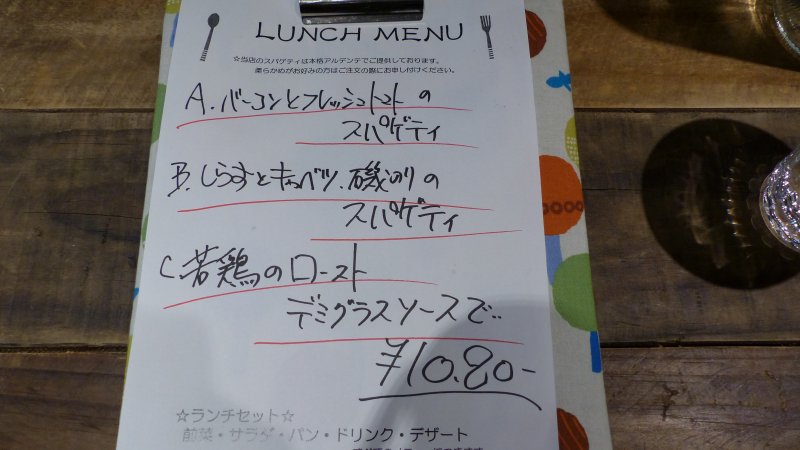 LUNCH MENU
☆当店のスパゲティは本格アルデンテでご提供しております。
柔らかめがお好みの方はご注文の際にお申し付けください。
A.ベーコンとフレッシュトマトの
スパゲティ
B.しらすとキャベツ.磯のりの
スパゲティ
C.若鶏のロースト
デミグラスソースで..
¥10.80-
☆ランチセット☆
前菜・サラダ・パン・ドリンク・デザート